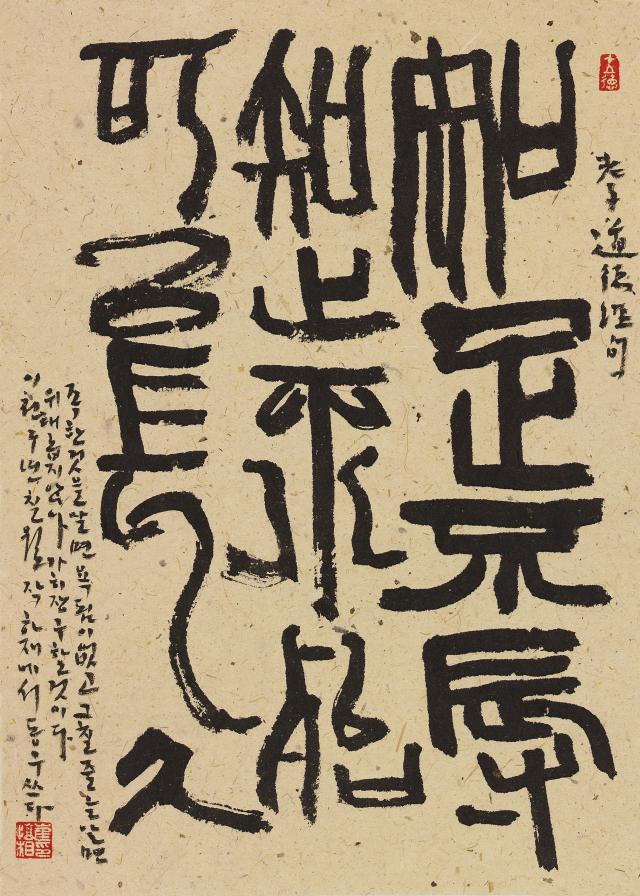 老子 道德經句
知足不辱
知止不殆
可以長久
족한것을 알면 욕됨이 없고 그칠줄을 알면
위태롭지 않아 가히 장구할것이다
이천구년 칠월 작하재에서 동우 쓰다